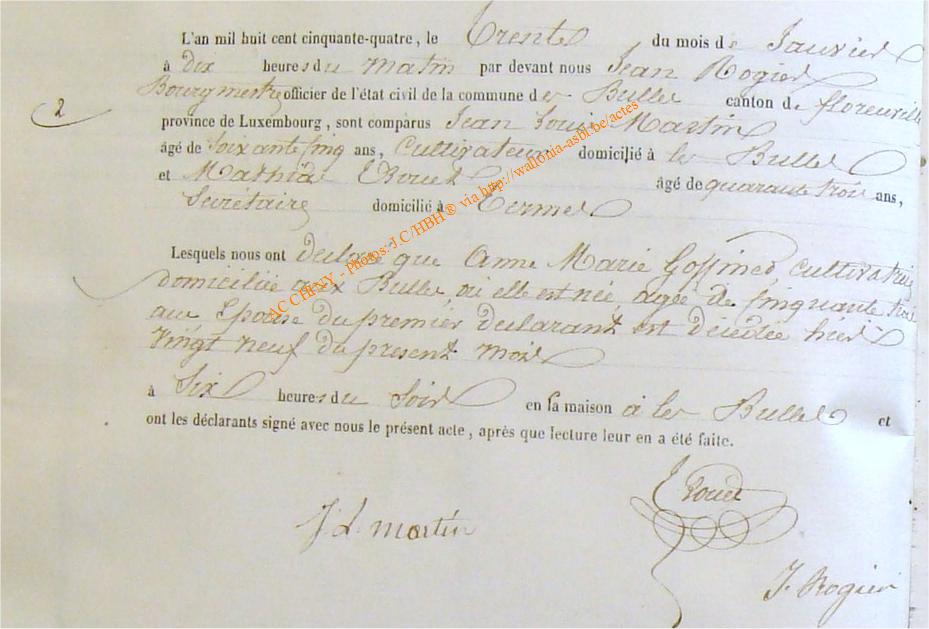 L'an mil huit cent cinquante-quatre, le Trente du mois de Janvier
à dix heures du matin par devant nous Jean Rogier
Bourgmestre officier de l'état civil de la commune des Bulles canton de florenville
2
province de Luxembourg, sont comparus Jean Louis Martin
âgé de Soixante cinq ans, Cultivateur domicilié à les Bulles
et Mathias âgé de quarante trois ans,
Secrétaire domicilié à Termes
Lesquels nous ont déclaré que Anne Marie Goffinet, cultivatrice
domiciliée aux Bulles, ou elle est née agée de Cinquante trois
ans Epouse du premier déclarant est décédée hier
Vingt neuf du present mois
à Six heures du Soir en sa maison à les Bulles et
ont les déclarants signé avec nous le présent acte, après que lecture leur en a été faite.
J. L. martin
J. Rogier
AC CHINY - Photos: J C/HBH® via http://wallonia-asbl.be/actes